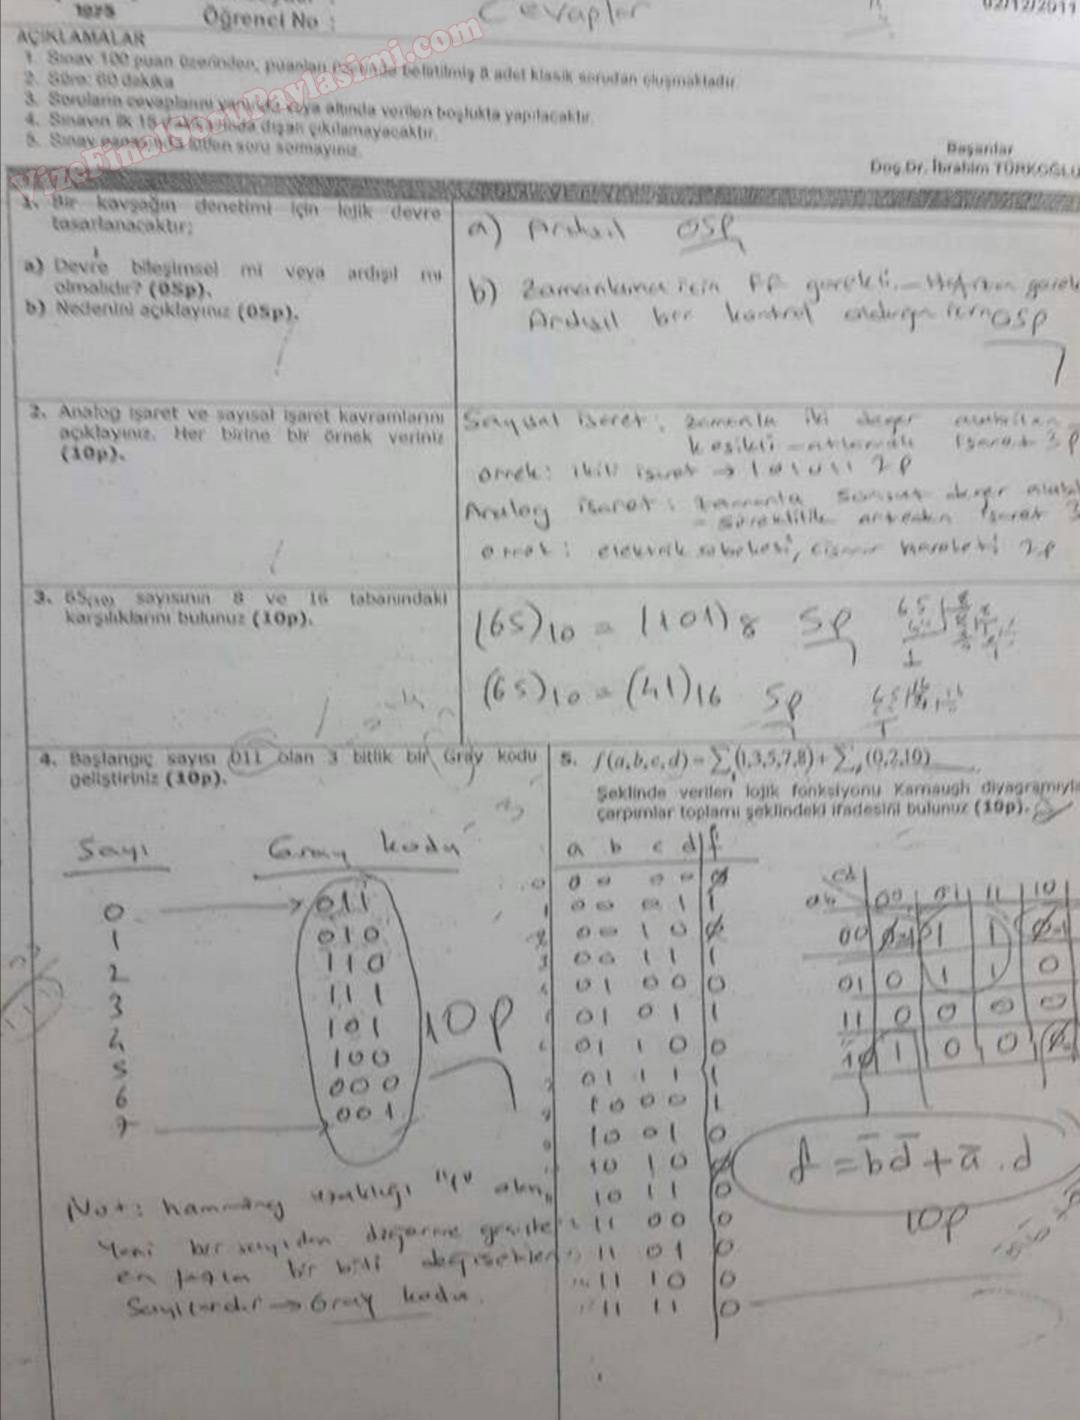 1975
Öğrenci No :
Cevaplar
02/12/2011
AÇIKLAMALAR
1. Sınav 100 puan üzerinden, puanları belirtilmiş 8 adet klasik sorudan oluşmaktadır.
2. Süre: 60 dakika
3. Soruların cevaplarını veya altında verilen boşlukta yapılacaktır.
4. Sınavın ilk 15 dışarı çıkılamayacaktır.
5. Sınav lütfen soru sormayınız.
VizeFinalSoruPaylasimi.com
Başarılar
Doç.Dr. İbrahim TÜRKOĞLU
1. Bir kavşağın denetimi için lojik devre
tasarlanacaktır;
a) Devre bileşimsel mi veya ardışıl mı
olmalıdır? (05p).
b) Nedenini açıklayınız (05p).
a) Ardışıl 05p
b) Zamanlama için FF gerekli
Ardışıl bir kontrol olduğu için 05p
2. Analog işaret ve sayısal işaret kavramlarını
açıklayınız. Her birine bir örnek veriniz
(10p).
Sayısal işaret : zamanla iki değer alabilen
kesikli - atlamalı işaret 3p
örnek : ikili işaret → 101011 2p
Analog işaret : zamanla sonsuz değer
süreklilik işaret 3
örnek : elektrik şebekesi, hareketi 2p
3. 65(10) sayısının 8 ve 16 tabanındaki
karşılıklarını bulunuz (10p).
(65)10 = (101)8 5p
(65)10 = (41)16 5p
4. Başlangıç sayısı 011 olan 3 bitlik bir Gray kodu
geliştiriniz (10p).
Sayı Gray kodu
0 → 011
1 010
2 110
3 111
4 101
5 100
6 000
7 → 001
10p
Not : hamming uzaklığı "1" olan,
Yani bir sayıdan diğerine geçişte
en fazla bir biti değişebilen
Sayılardır → Gray kodu.
5. f(a,b,c,d) = ∑1(1,3,5,7,8) + ∑(0,2,10)
Şeklinde verilen lojik fonksiyonu Karnaugh diyagramıyla
çarpımlar toplamı şeklindeki ifadesini bulunuz (10p).
a b c d f
0 0 0 0 0 Ø
1 0 0 0 1 1
2 0 0 1 0 Ø
3 0 0 1 1 1
0 1 0 0 0
0 1 0 1 1
0 1 1 0 0
0 1 1 1 1
1 0 0 0 1
1 0 0 1 0
1 0 1 0 Ø
1 0 1 1 0
1 1 0 0 0
1 1 0 1 0
1 1 1 0 0
1 1 1 1 0
cd
ab 00 01 11 10
00 Ø=1 1 1 Ø=1
01 0 1 1 0
11 0 0 0 0
10 1 0 0 Ø
f = b̄d̄ + ā.d
10p